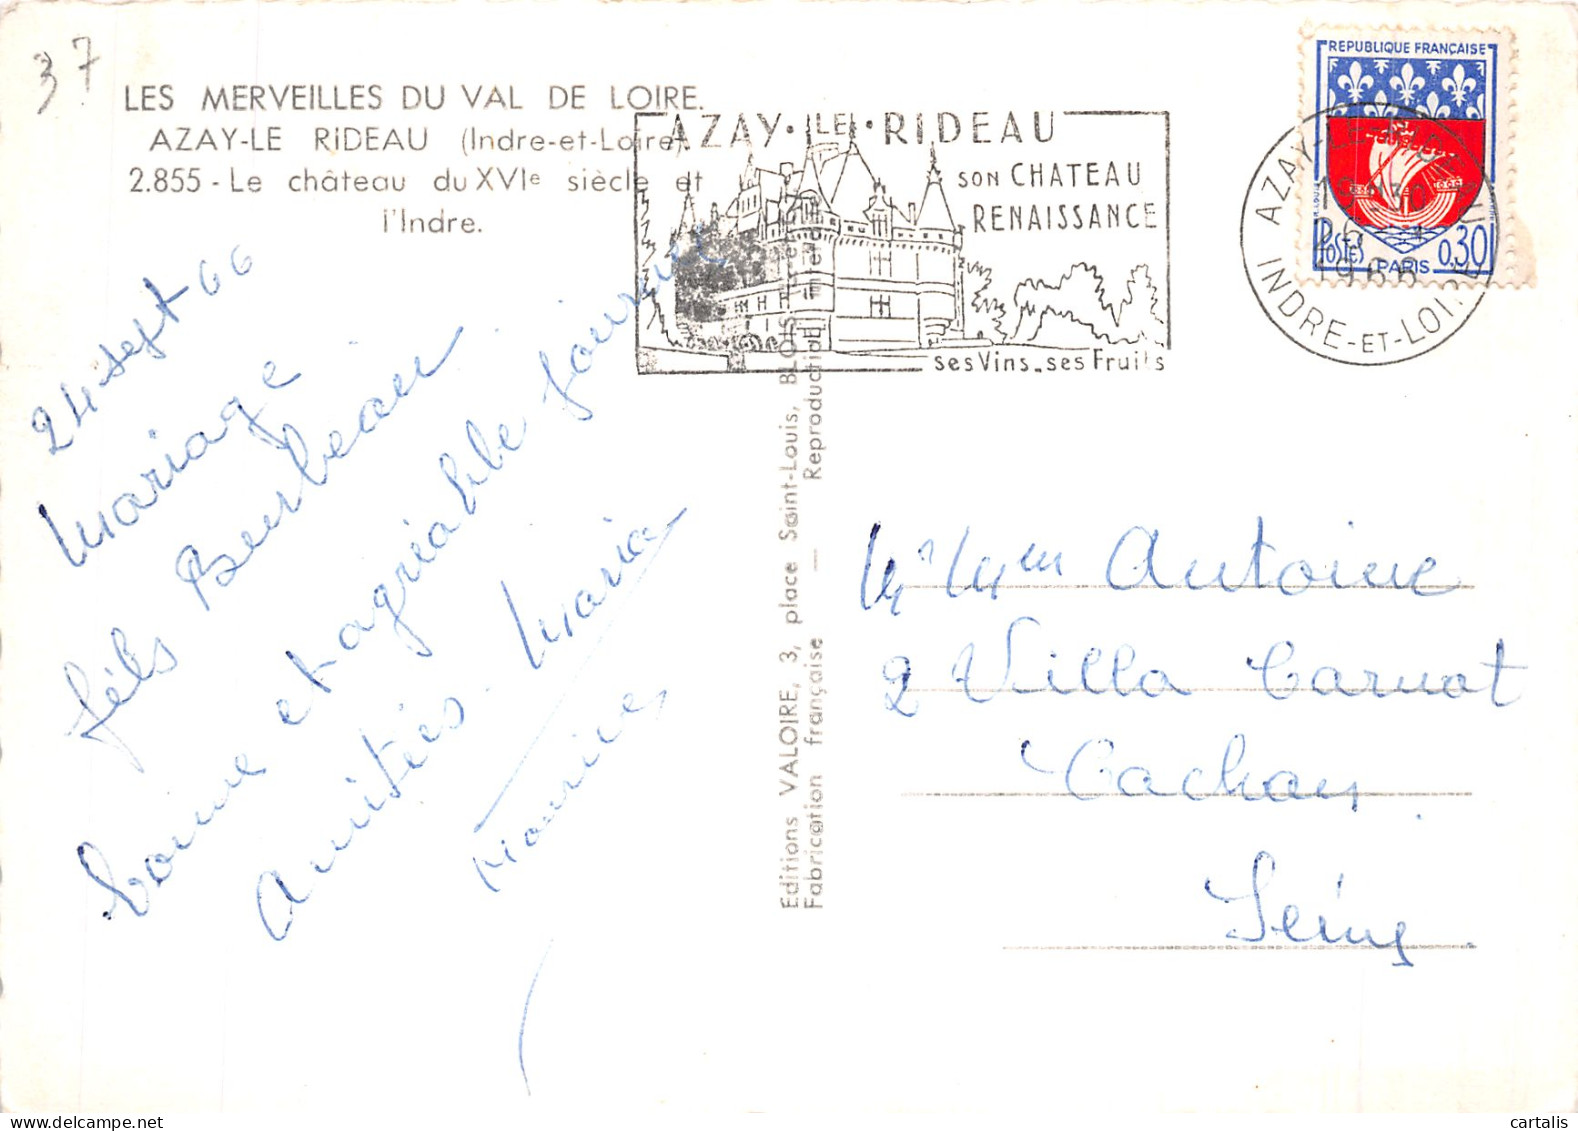 37
LES MERVEILLES DU VAL DE LOIRE.
AZAY-LE RIDEAU (Indre-et-Loire).
2.855 - Le château du XVIe siècle et
l'Indre.
AZAY·LE·RIDEAU
SON CHATEAU
RENAISSANCE
ses Vins_ses Fruits
REPUBLIQUE FRANÇAISE
POSTES
PARIS
0.30
AZAY-LE-RIDEAU
1966
INDRE-ET-LOIRE
24 sept 66
Mariage
fils Berbeau
bonne et agréable journée
Amitiés. Maria
Maurice
Editions VALOIRE, 3, place Saint-Louis, BLOIS
Fabrication française — Reproduction
Antoine
2 Villa Carnot
Cachan
Seine
cartalis